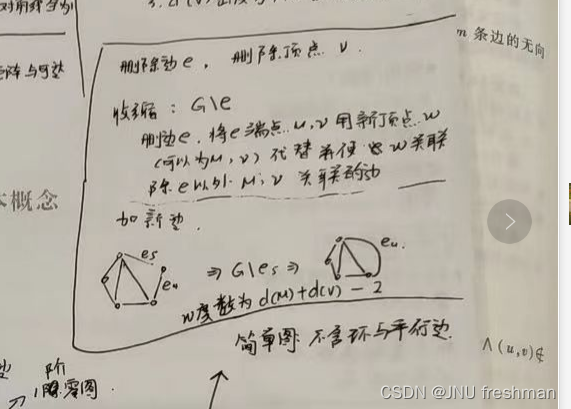 删除边e, 删除顶点 v.
m 条边的无向
收缩: G\e
删边e, 将e端点 u, v 用新顶点 w
(可以为u, v) 代替并使 w关联
除e以外 u, v 关联的边
本概念
加新边.
e5
e4
⇒ G\e5 ⇒
e4.
w度数为 d(u)+d(v) - 2
简单图: 不含环与平行边.
∧(u,v)∉
阶
零图.
CSDN @JNU freshman